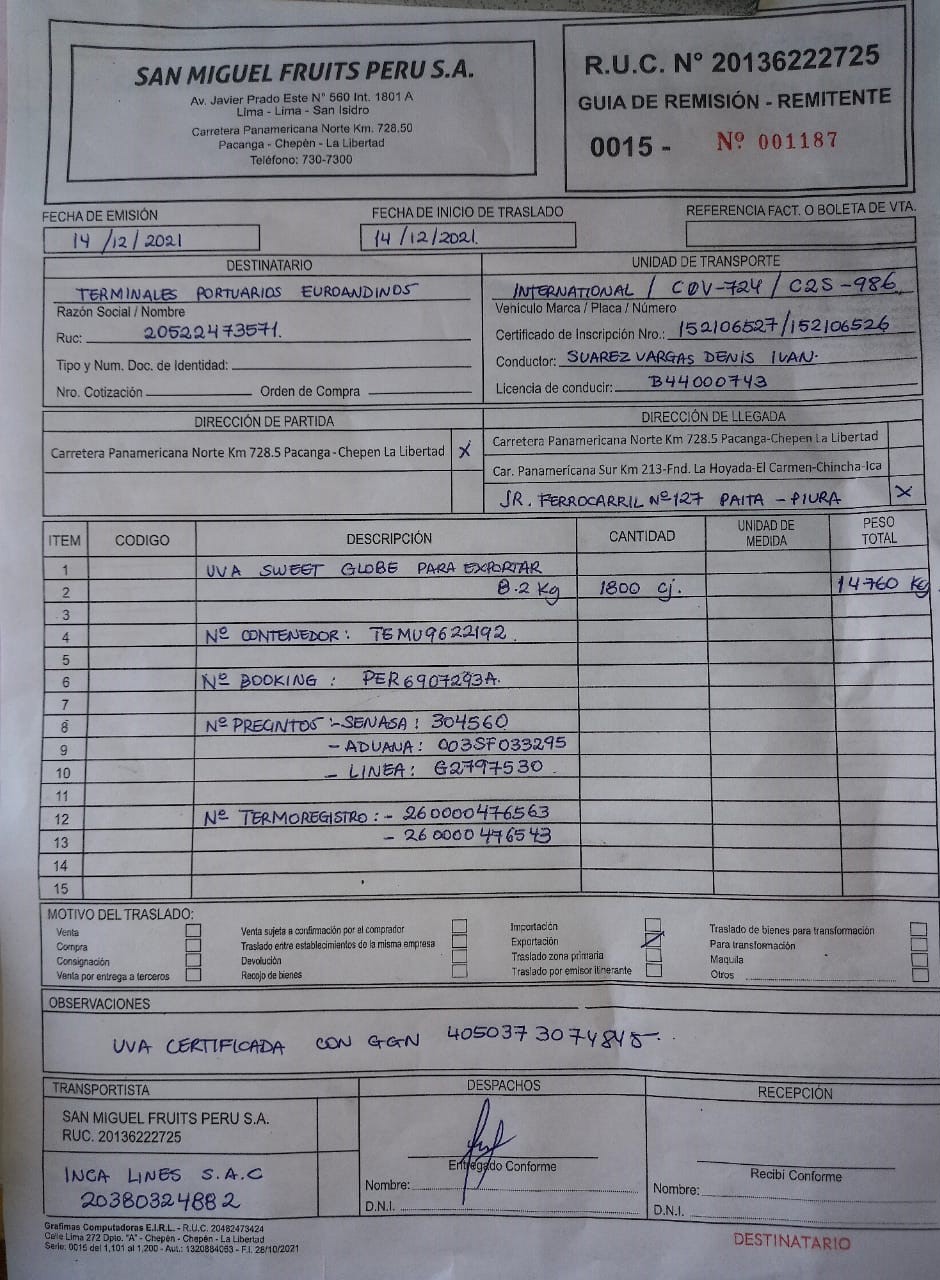 SAN MIGUEL FRUITS PERU S.A.
Av. Javier Prado Este N° 560 Int. 1801 A
Lima - Lima - San Isidro
Carretera Panamericana Norte Km. 728.50
Pacanga - Chepén - La Libertad
Teléfono: 730-7300
R.U.C. N° 20136222725
GUIA DE REMISIÓN - REMITENTE
0015 - Nº 001187
FECHA DE EMISIÓN
14 /12 / 2021
FECHA DE INICIO DE TRASLADO
14 /12 /2021.
REFERENCIA FACT. O BOLETA DE VTA.
DESTINATARIO
TERMINALES PORTUARIOS EUROANDINOS
Razón Social / Nombre
Ruc: 20522473571.
Tipo y Num. Doc. de Identidad:
Nro. Cotización Orden de Compra
UNIDAD DE TRANSPORTE
INTERNATIONAL / C0V-724 / C2S-986
Vehiculo Marca / Placa / Número
Certificado de Inscripción Nro.: 152106527/152106526
Conductor: SUAREZ VARGAS DENIS IVAN.
Licencia de conducir: B44000743
DIRECCIÓN DE PARTIDA
Carretera Panamericana Norte Km 728.5 Pacanga-Chepen La Libertad X
DIRECCIÓN DE LLEGADA
Carretera Panamericana Norte Km 728.5 Pacanga-Chepen La Libertad
Car. Panamericana Sur Km 213-Fnd. La Hoyada-El Carmen-Chincha-Ica
JR. FERROCARRIL Nº127 PAITA - PIURA X
ITEM CODIGO DESCRIPCIÓN CANTIDAD UNIDAD DE MEDIDA PESO TOTAL
1 UVA SWEET GLOBE PARA EXPORTAR
2 8.2 Kg 1800 cj. 14760 Kg
3
4 Nº CONTENEDOR: TEMU9622192
5
6 Nº BOOKING : PER6907293A.
7
8 Nº PRECINTOS :-SENASA: 304560
9 -ADUANA: 003SF033295
10 - LINEA: G2797530
11
12 Nº TERMOREGISTRO: - 260000476563
13 - 260000476543
14
15
MOTIVO DEL TRASLADO:
Venta
Compra
Consignación
Venta por entrega a terceros
Venta sujeta a confirmación por el comprador
Traslado entre establecimientos de la misma empresa
Devolución
Recojo de bienes
Importación
Exportación
Traslado zona primaria
Traslado por emisor itinerante
Traslado de bienes para transformación
Para transformación
Maquila
Otros
OBSERVACIONES
UVA CERTIFICADA CON GGN 4050373074845.
TRANSPORTISTA
SAN MIGUEL FRUITS PERU S.A.
RUC. 20136222725
INCA LINES S.A.C
20380324882
DESPACHOS
Entregado Conforme
Nombre:
D.N.I.
RECEPCIÓN
Recibí Conforme
Nombre:
D.N.I.
Grafimas Computadoras E.I.R.L. - R.U.C. 20482473424
Calle Lima 272 Dpto. "A" - Chepén - Chepén - La Libertad
Serie: 0015 del 1,101 al 1,200 - Aut.: 1320884063 - F.I. 28/10/2021
DESTINATARIO